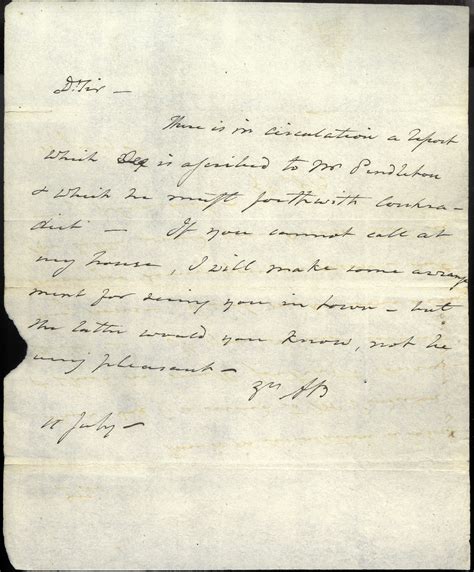 Dr Sir —
There is in circulation a report
which is ascribed to Mr Pendleton
& which he must forthwith contra-
dict — If you cannot call at
my house, I will make some arrange
ment for seeing you in town — but
the latter would you know, not be
very pleasant —
yrs AB
11 July —